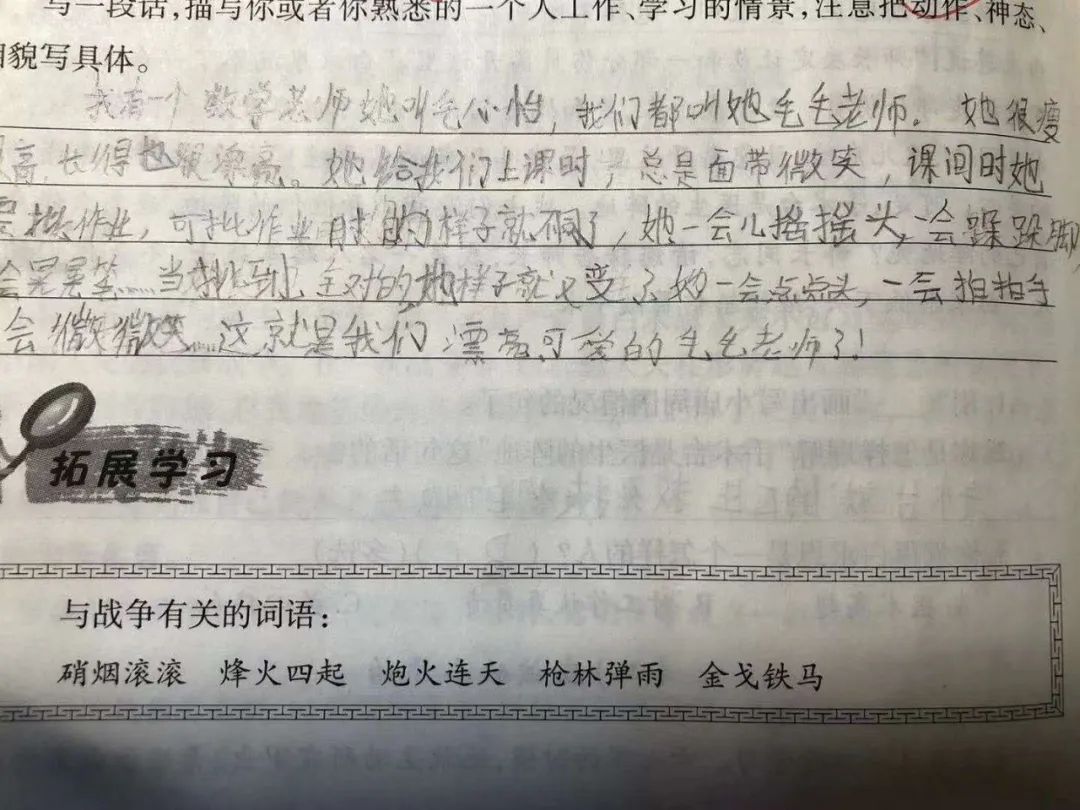 写一段话,描写你或者你熟悉的一个人工作、学习的情景,注意把动作、神态、
相貌写具体。
我有一个数学老师她叫毛心怡,我们都叫她毛毛老师。她很瘦
高,长得也很漂亮。她给我们上课时,总是面带微笑,课间时她
批作业,可批作业时的样子就不同了,她一会儿摇摇头,一会跺跺脚,
会晃晃笔……当批到全对的她样子就又变了她一会点点头,一会拍拍手
会微微笑……这就是我们漂亮可爱的毛毛老师了!
拓展学习
与战争有关的词语:
硝烟滚滚 烽火四起 炮火连天 枪林弹雨 金戈铁马